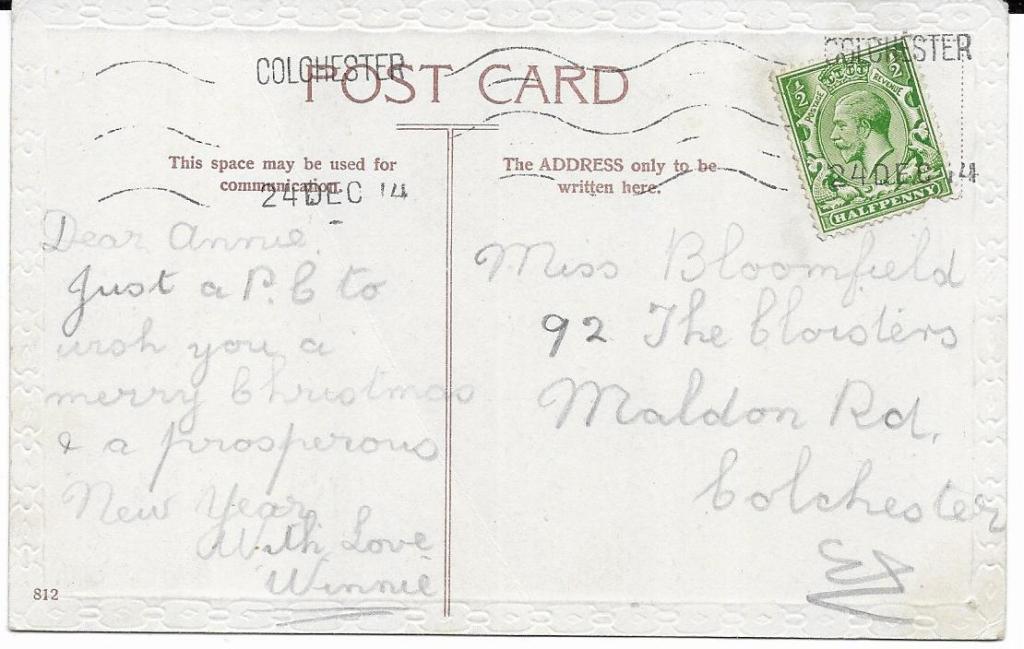 COLCHESTER
COLCHESTER
POST CARD
24 DEC 14
24 DEC 14
½ ½
POSTAGE REVENUE
HALFPENNY
This space may be used for
communication.
The ADDRESS only to be
written here.
Dear Annie.
Just a P.C to
wish you a
merry Christmas
& a prosperous
New Year
With Love
Winnie
Miss Bloomfield
92 The Cloisters
Maldon Rd.
Colchester
812